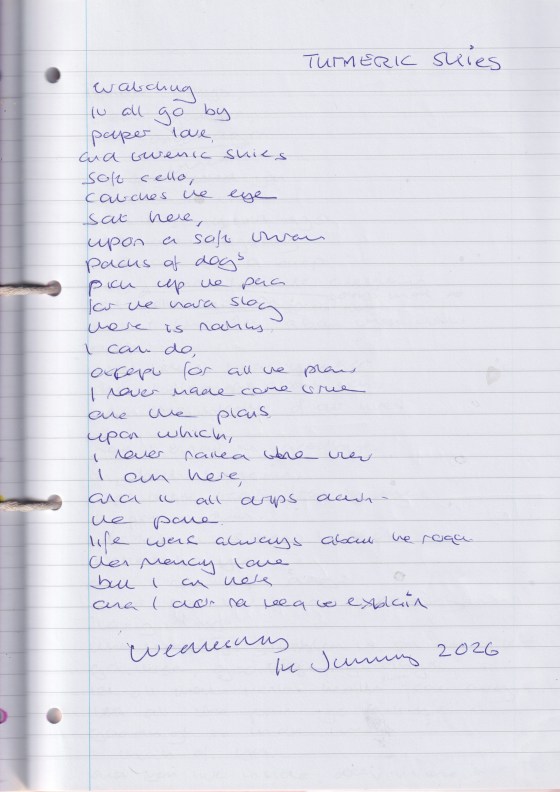 TURMERIC SKIES
watching
it all go by
paper love,
and turmeric skies
soft cello,
catches the eye
sat here,
upon a soft
packs of dogs
pick up the
for the hard slog
there is nothing
I can do,
except for all the plans
I never made come true
are the plans
upon which,
I never
I am here,
and it all drips down
the pane
life was always about the
love
but I am here
and I don't need to explain
Wednesday
14 January 2026